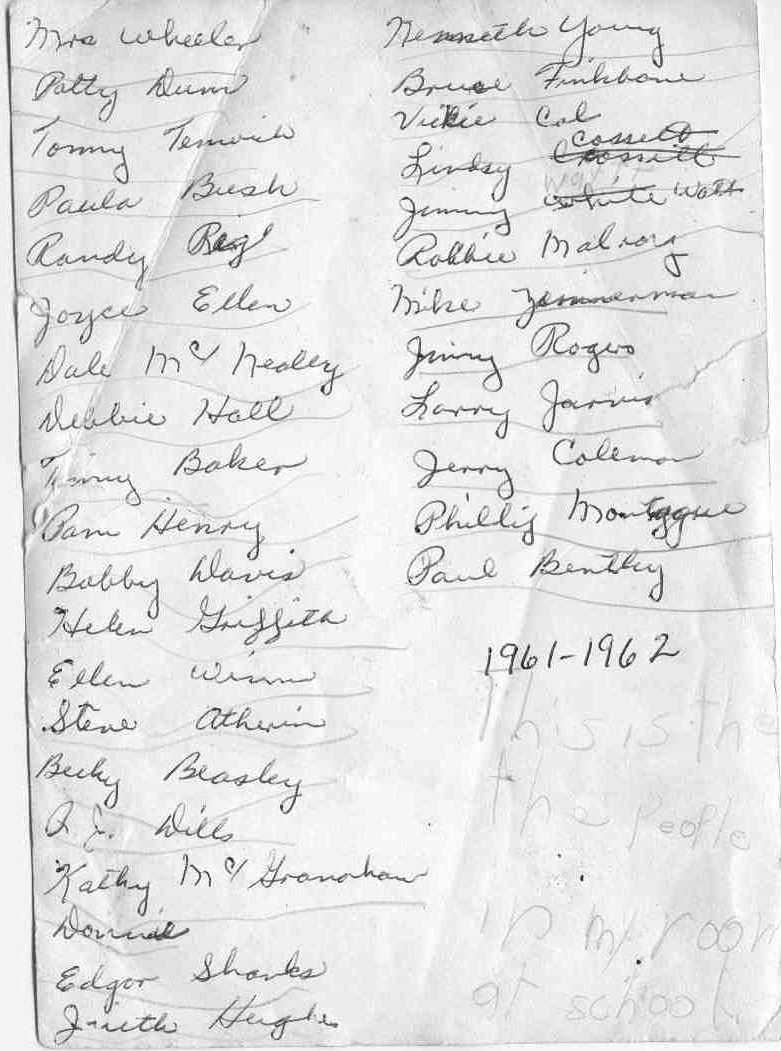 Mrs Wheeler
Patty Dunn
Tommy
Paula Bush
Randy
Joyce Ellen
Dale Mc Nealey
Debbie Hall
Timmy Baker
Pam Henry
Bobby Davis
Helen Griffith
Ellen Winn
Steve Atherin
Becky Beasley
A.J. Dills
Kathy Mc Granahan
Donnie
Edgar Shanks
Hughes
Kenneth Young
Bruce Finkbone
Vickie Col
Cossett
Lindsy Crossitt
Jimmy White Watt
Robbie Malrory
Mike Zimmerman
Jimmy Rogers
Larry Jarvis
Jerry Coleman
Phillip Montague
Paul Bentley
1961-1962
This is the
the People
in my room
at school